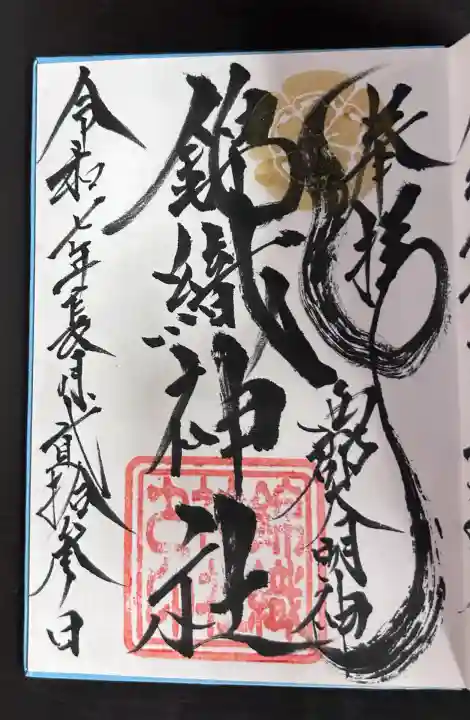 奉拝
明神
錦織神社
令和七年長月貳拾参日
錦織
神社
之印